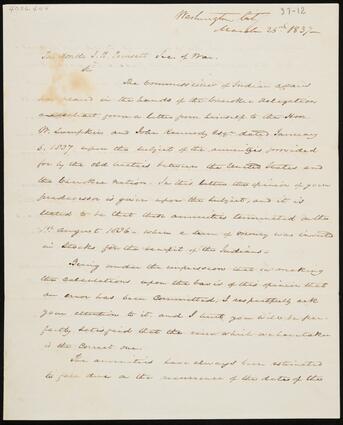 4026.604
37-12
Washington City
March 25th 1837—
The Honble J. R. Poinsett Sec. of War.
Sir
The Commissioner of Indian Affairs
has placed in the hands of the Cherokee Delegation
an extract from a letter from himself to the Hon
W. Lumpkin and John Kennedy Esqr dated January
1837 upon the subject of the annuities provided
for by the old treaties between the United States and
the Cherokee Nation. In this letter the opinion of your
predecessor is given upon the subject, and it is
stated to be that these annuities terminated on the
August 1836— when a sum of money was invested
in Stocks for the benefit of the Indians—
Being under the impression that in making
the calculations upon the basis of this opinion that
an error has been committed, I respectfully ask
your attention to it, and I trust you will be per-
fectly satisfied that the view which we have taken
is the correct one.
The annuities have always been estimated
to fall due on the recurrence of the dates of the